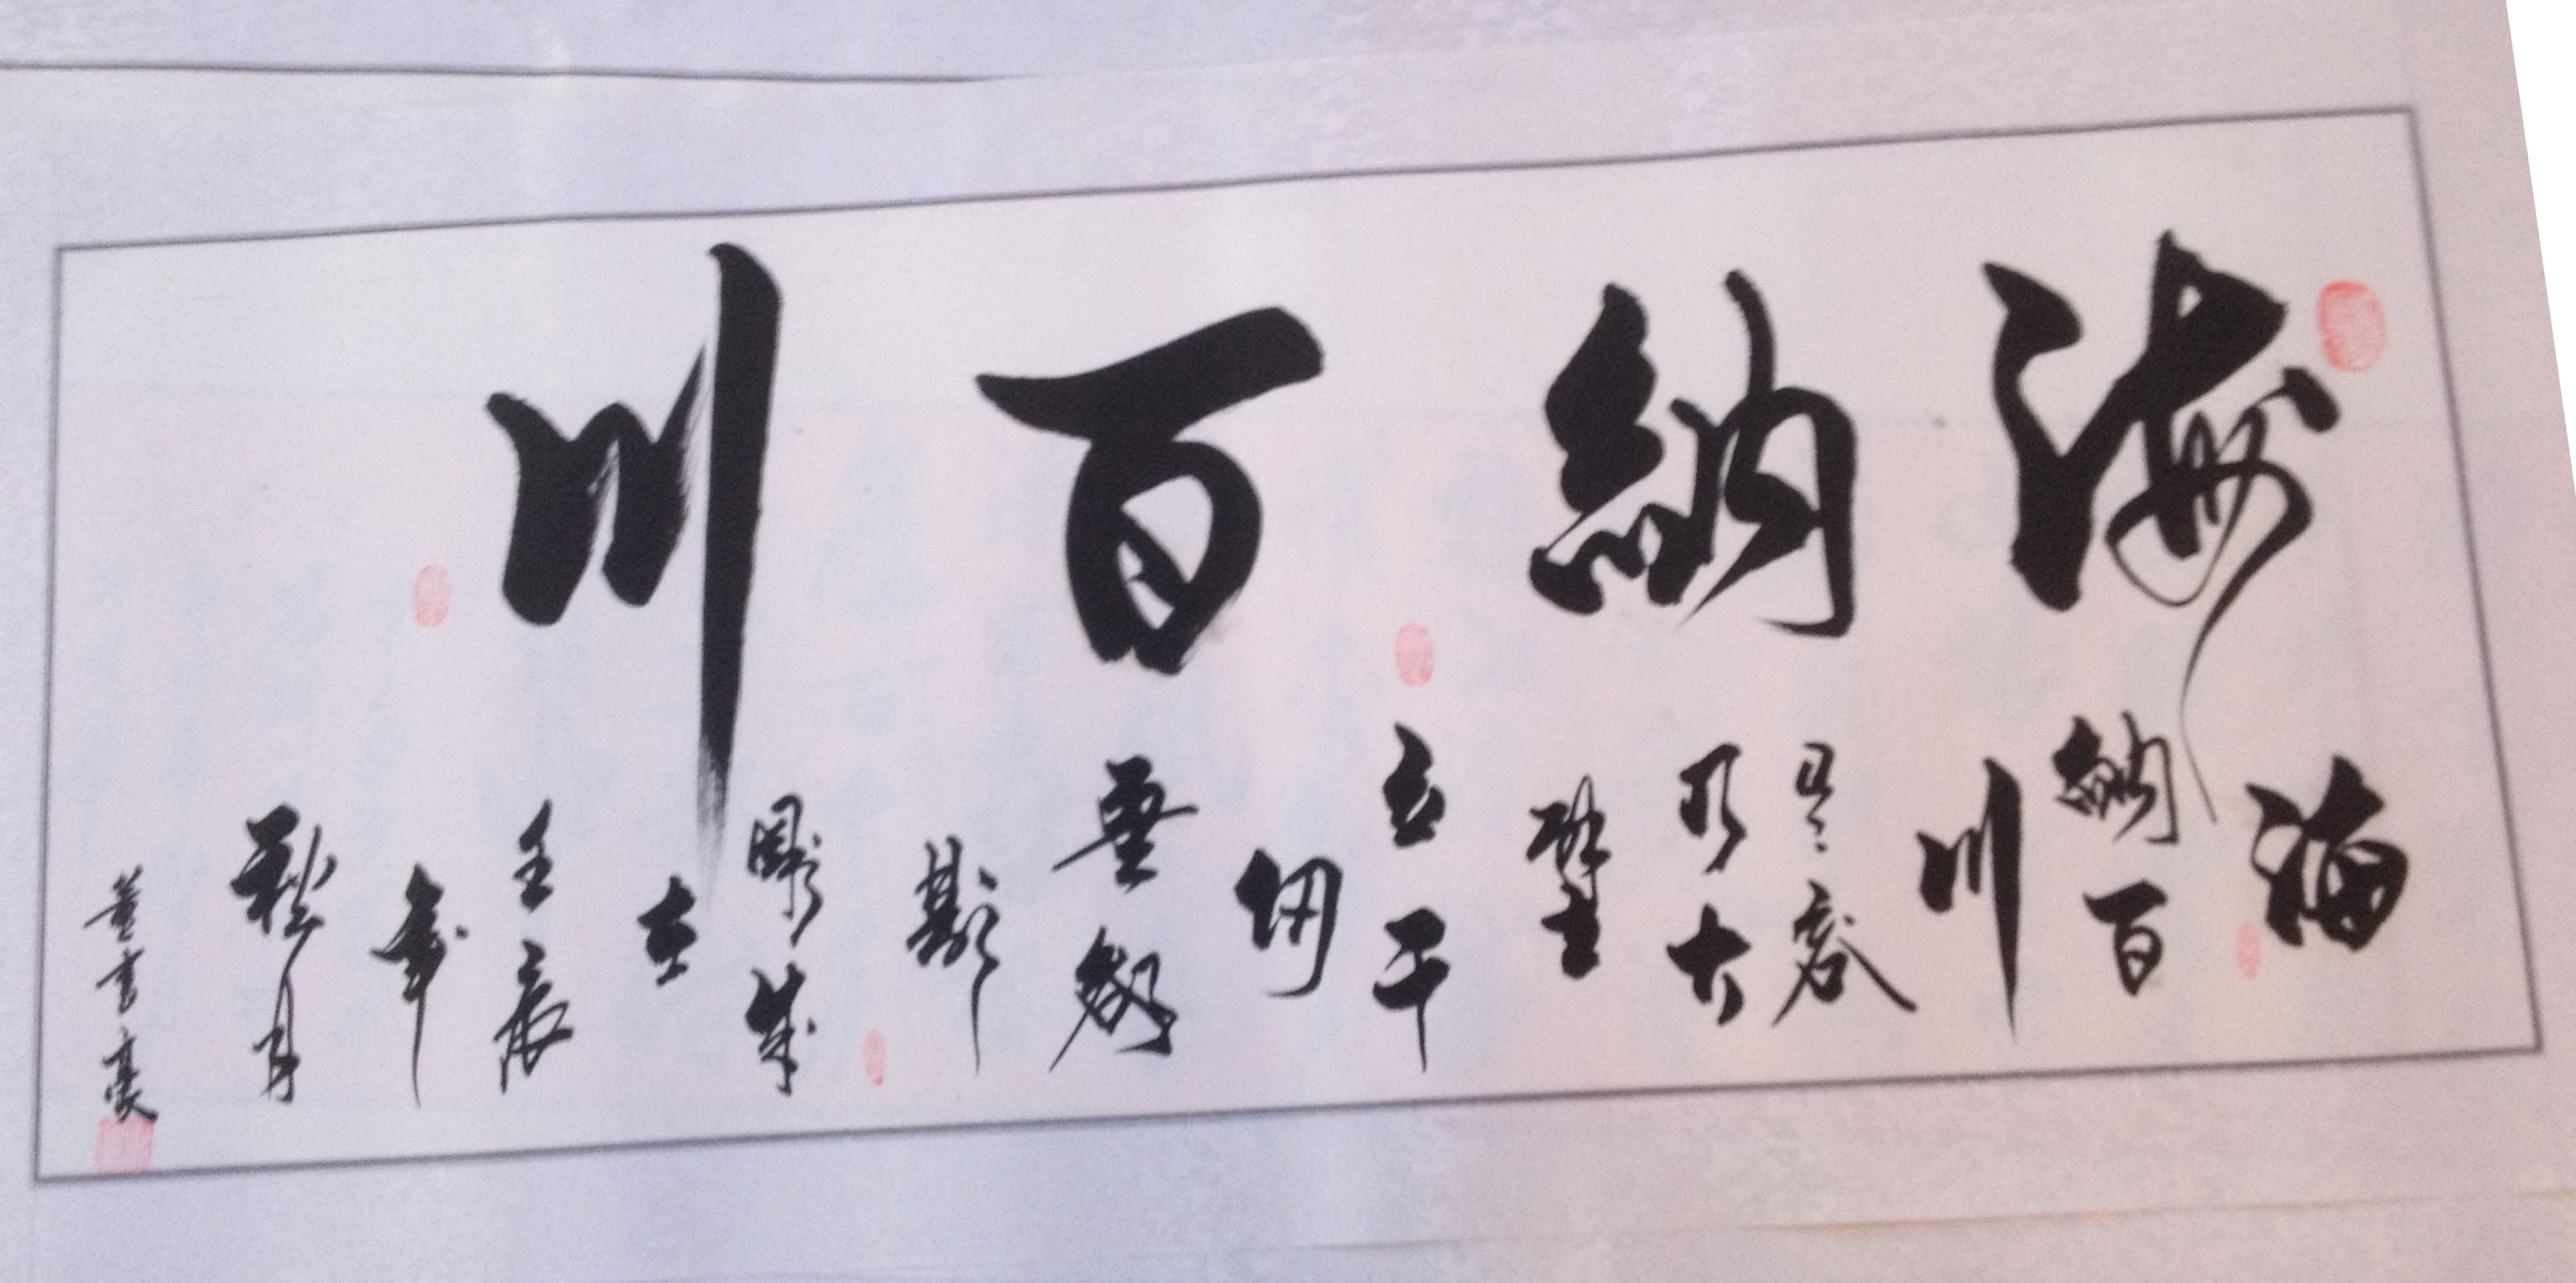 海納百川
海
納百
川
有容
乃大
壁
立千
仞
無欲
斯
剛歲
在
壬辰
年
秋月
董書豪